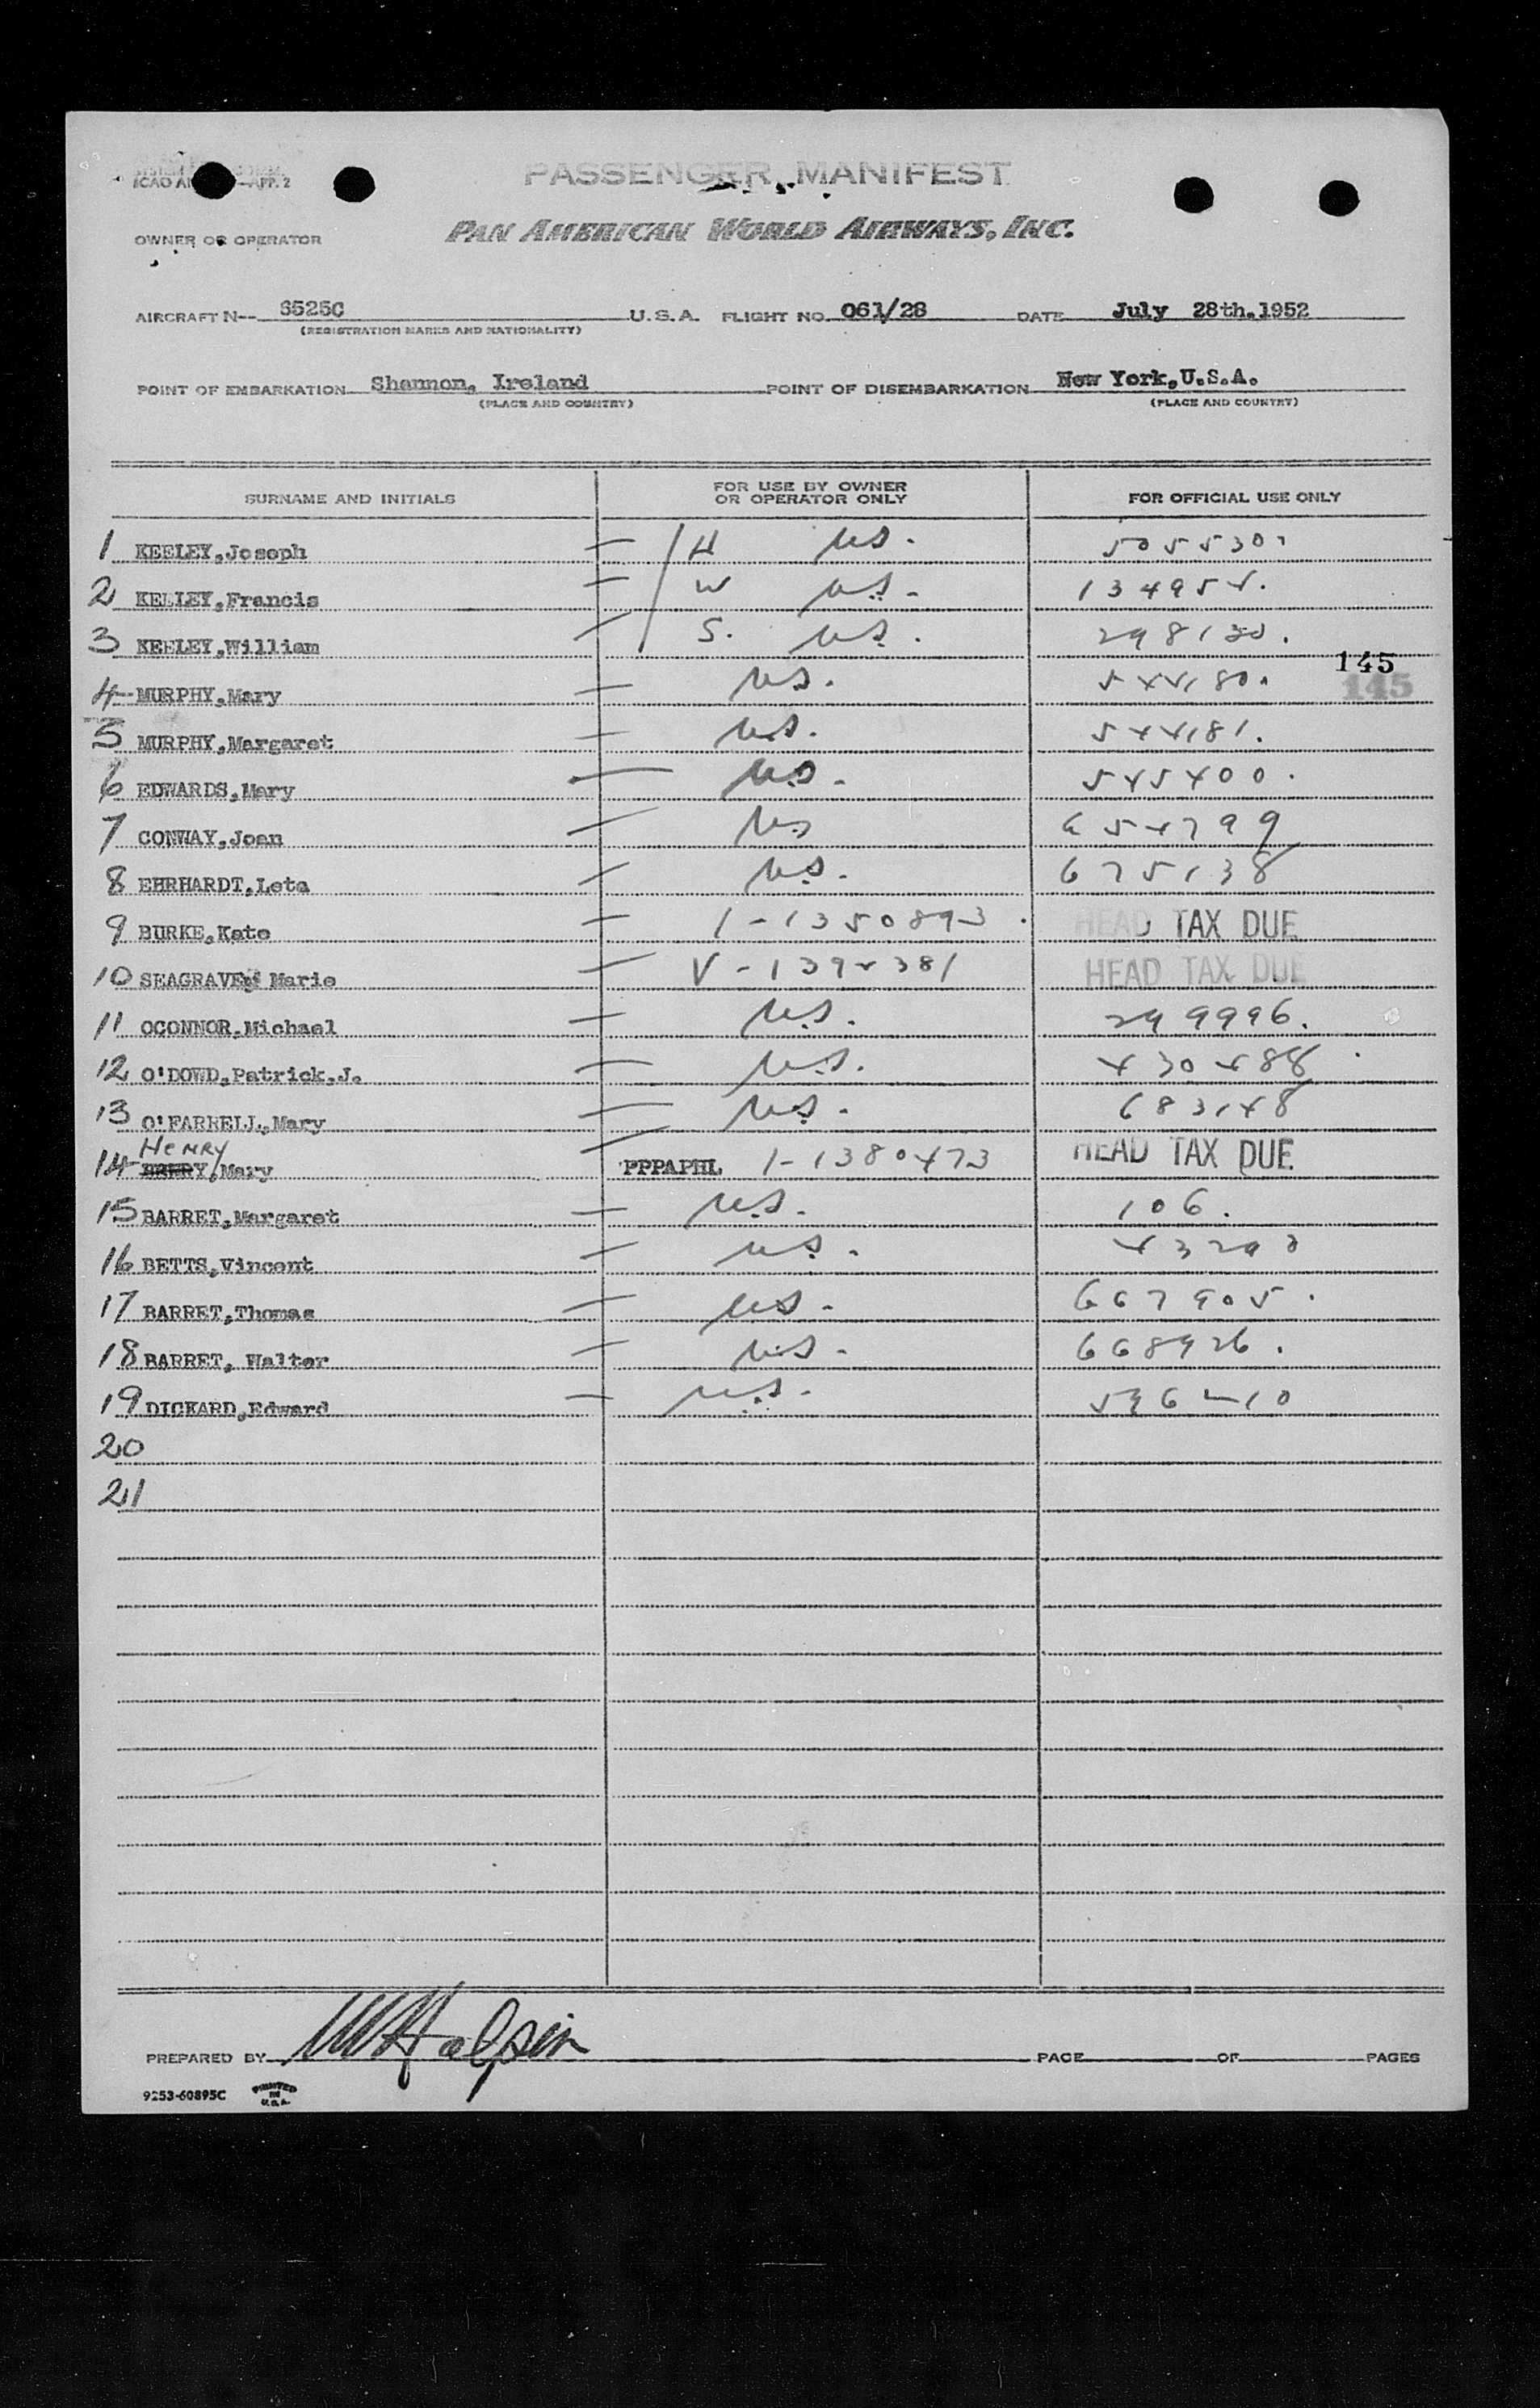 PASSENGER MANIFEST
ICAO —APP. 2
PAN AMERICAN WORLD AIRWAYS, INC.
OWNER OR OPERATOR
AIRCRAFT N-- 6525C U.S.A. FLIGHT NO. 061/28 DATE July 28th.1952
(REGISTRATION MARKS AND NATIONALITY)
POINT OF EMBARKATION Shannon, Ireland POINT OF DISEMBARKATION New York,U.S.A.
(PLACE AND COUNTRY) (PLACE AND COUNTRY)
SURNAME AND INITIALS FOR USE BY OWNER OR OPERATOR ONLY FOR OFFICIAL USE ONLY
1 KEELEY,Joseph H US. 505530
2 KEELEY,Francis W US.
3 KEELEY,William S. US.
145
145
4 MURPHY,Mary US. 544180.
5 MURPHY,Margaret US. 544181.
6 EDWARDS,Mary US. 545400.
7 CONWAY,Joan US 654799
8 EHRHARDT,Leta US. 675138
9 BURKE,Kate 1-1350893 HEAD TAX DUE
10 SEAGRAVE Marie V-1392381 HEAD TAX DUE
11 OCONNOR,Michael US. 299996.
12 O'DOWD,Patrick.J. US. 430488
13 O'FARRELL,Mary US. 683148
HENRY
14 Mary PPPAPHL 1-1380473 HEAD TAX DUE
15 BARRET,Margaret US. 106.
16 BETTS,Vincent US.
17 BARRET,Thomas US. 667905.
18 BARRET, Walter US. 668926.
19 DICKARD,Edward US.
20
21
PREPARED BY WHalpin PAGE OF PAGES
9253-60895C PRINTED IN U.S.A.